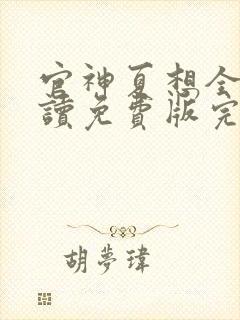 官神夏想全
讀免費版完
胡夢瑋